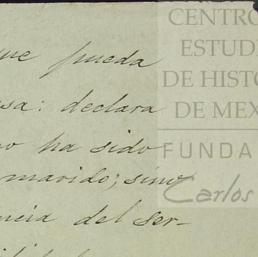 que pueda
sa: declara
o ha sido
marido; sino
ncia del ser-
CENTRO
ESTUD
DE HISTO
DE MEX
FUNDA
Carlos